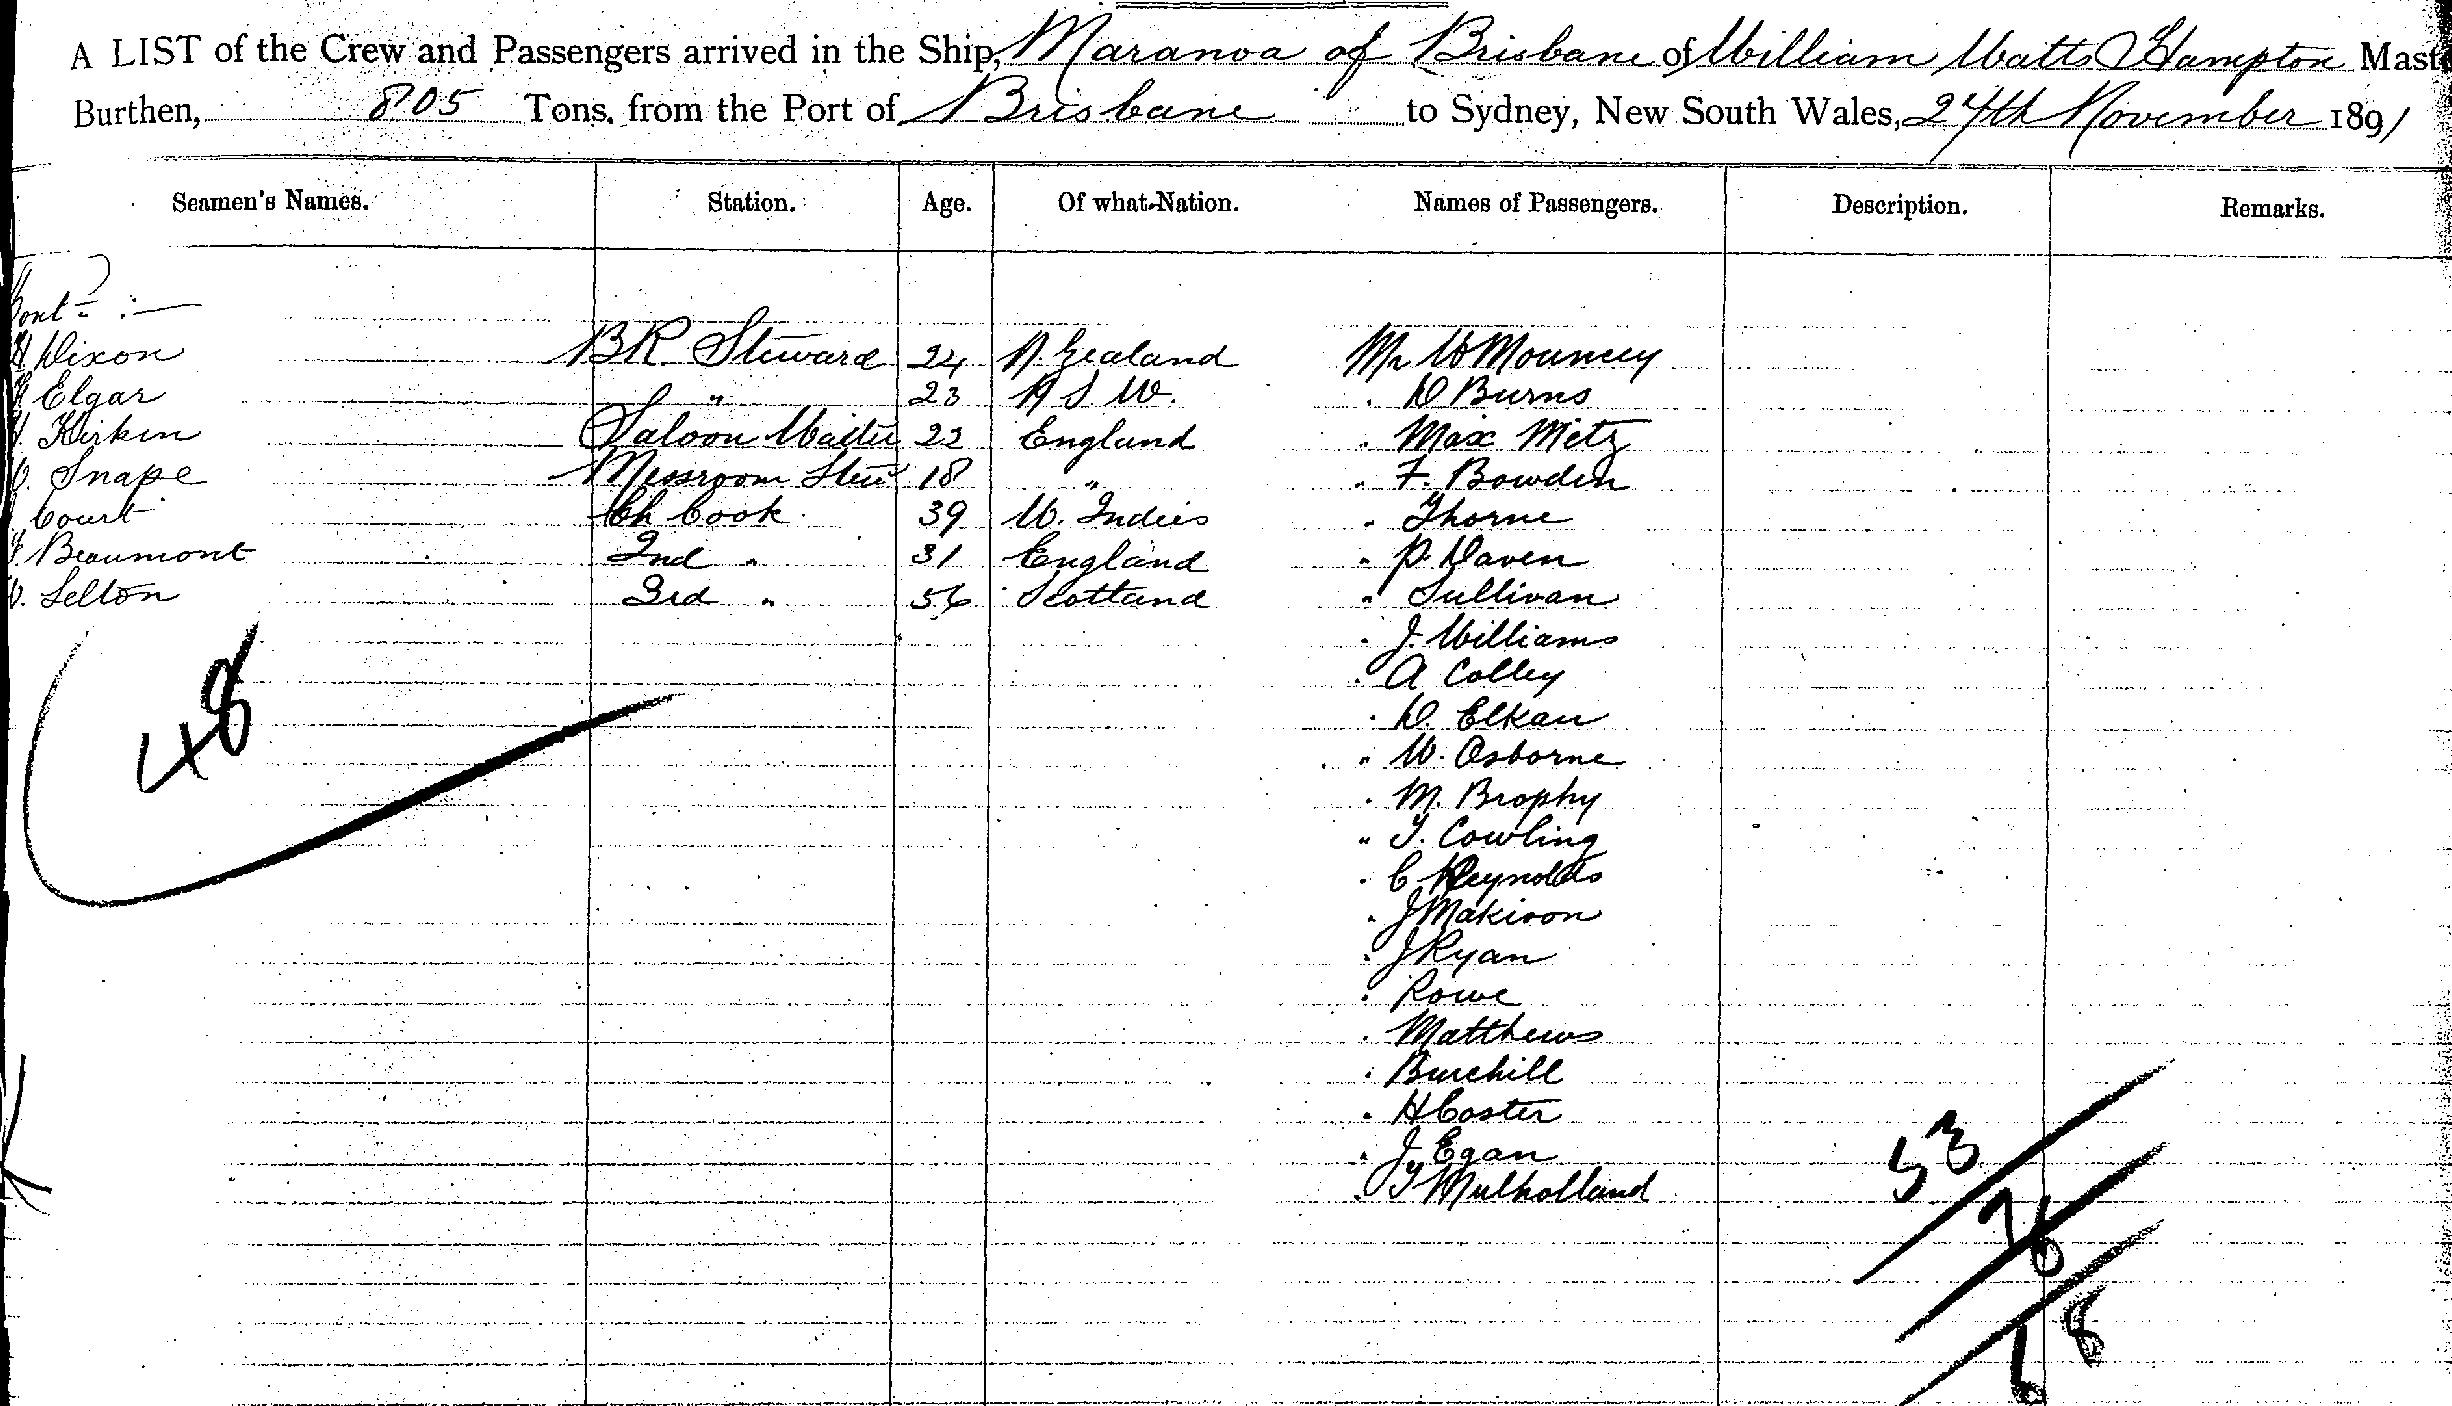 A LIST of the Crew and Passengers arrived in the Ship, Maranoa of Brisbane of William Watts Hampton Mast
Burthen, 805 Tons, from the Port of Brisbane to Sydney, New South Wales, 24th November 1891
Seamen's Names. Station. Age. Of what Nation. Names of Passengers. Description. Remarks.
Cont :—
Dixon BR Steward 24 N. Zealand Mr W Mouncey
Elgar " 23 N S W. " D Burns
Kirkin Saloon Waiter 22 England " Max Metz
Snape Messroom Stew 18 " " F. Bowden
Court Ch Cook 39 W. Indies " Thorne
Beaumont 2nd " 31 England " P. Daven
Selton 3rd " 56 Scotland " Sullivan
" J. Williams
" A Colley
" D. Elkan
" W. Osborne
" M. Brophy
" T. Cowling
" C Reynolds
" J Makison
" J Ryan
" Rowe
" Matthews
" Burchill
" H Coster
" J Egan
" Mulholland
48
53
26
68